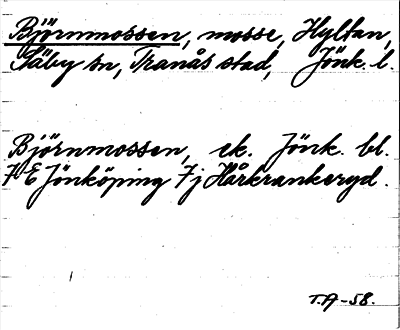 Björnmossen, mosse, Hyltan,
Säby sn, Tranås stad, Jönk. l.
Björnmossen, ek. Jönk. bl.
7 E Jönköping 7j Hårkrankeryd.
T.A-58.